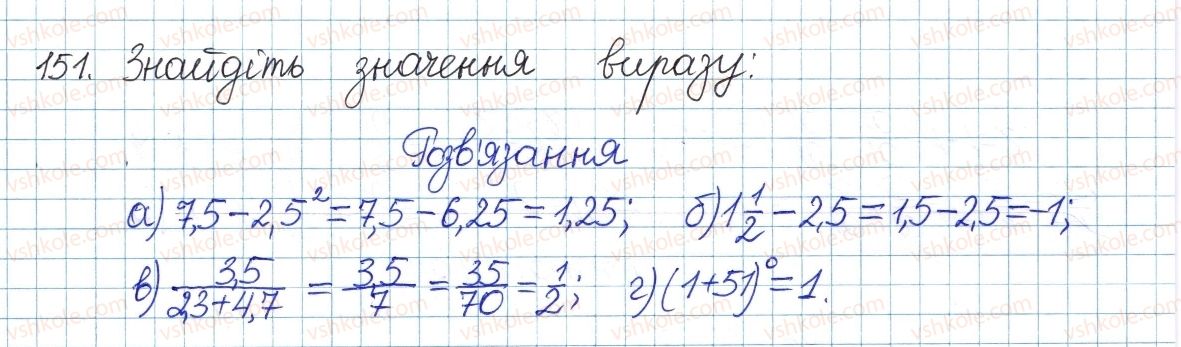 151. Знайдіть значення виразу:
Розв'язання
а) 7,5 - 2,5² = 7,5 - 6,25 = 1,25; б) 1 1/2 - 2,5 = 1,5 - 2,5 = -1;
в) 3,5/(2,3+4,7) = 3,5/7 = 35/70 = 1/2; г) (1+51)⁰ = 1.